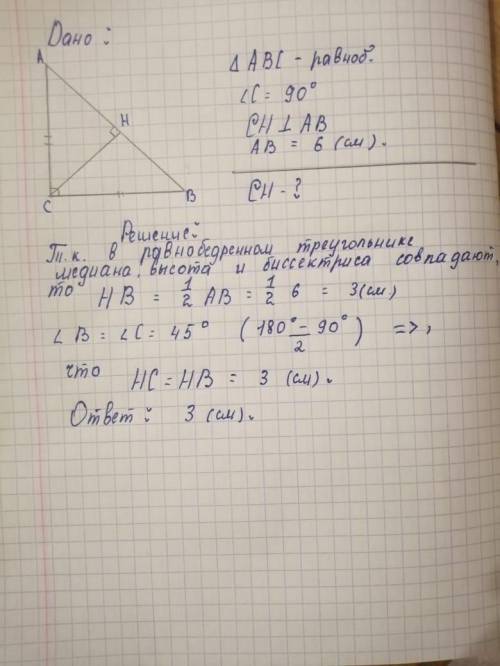 Дано:
A
H
C
B
Δ ABC - равноб.
∠C = 90°
CH ⊥ AB
AB = 6 (см).
CH - ?
Решение:
Т.к. в равнобедренном треугольнике
медиана, высота и биссектриса совпадают,
то HB = 1/2 AB = 1/2 6 = 3(см)
∠B = ∠C = 45° (180° - 90° / 2) =>,
что HC = HB = 3 (см).
Ответ: 3 (см).